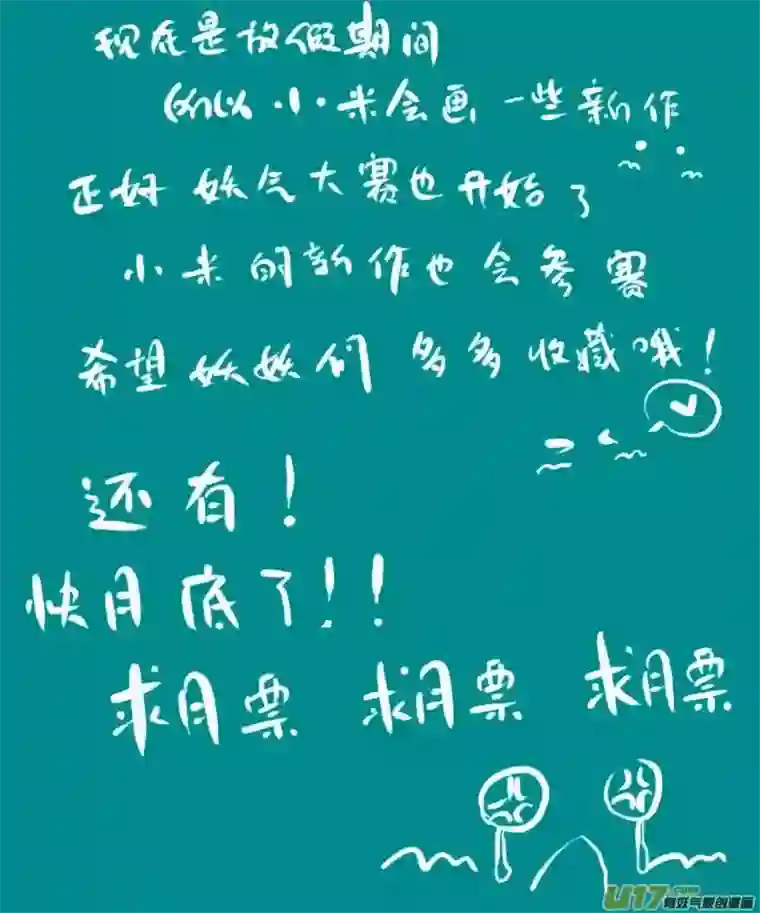 现在是放假期间
所以小米会画一些新作
正好妖气大赛也开始了
小米的新作也会参赛
希望妖妖们多多收藏哦!
还有!
快月底了!!
求月票 求月票 求月票
U17.com
有妖气原创漫画